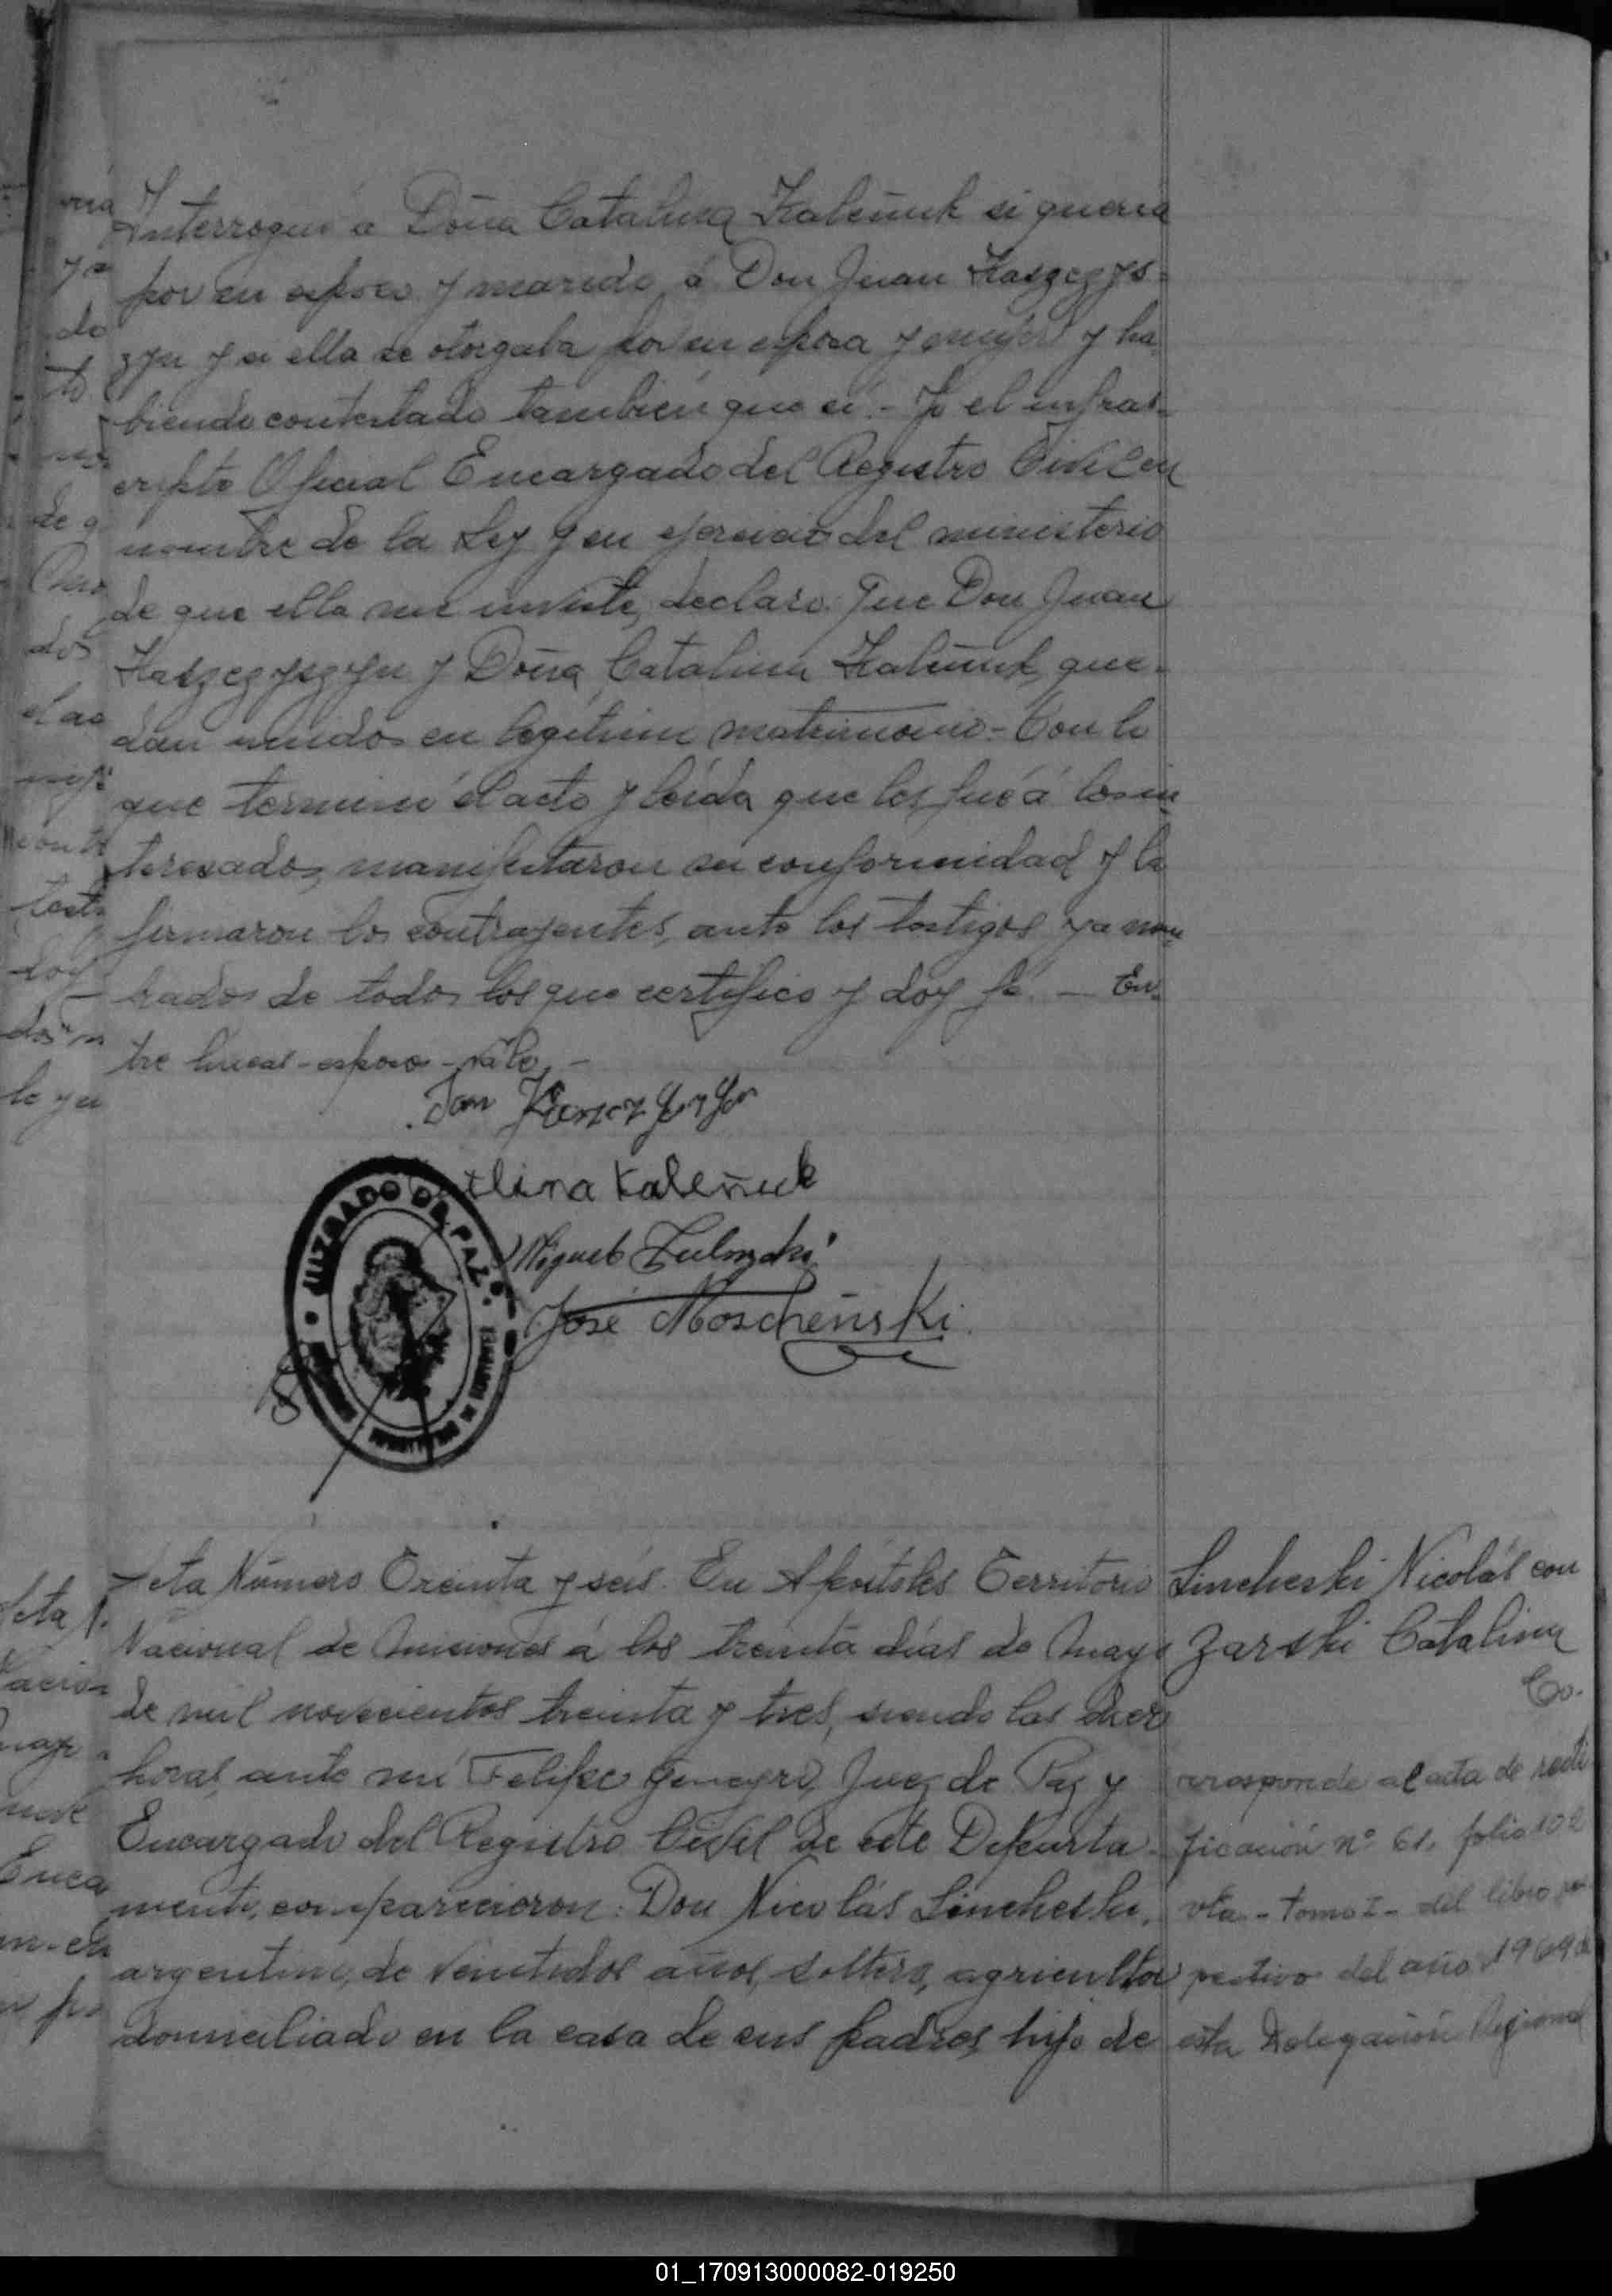 Interrogué á Doña Catalina Kaleñuk si queria
por su esposo y marido á Don Juan Kaszczys-
zyn y si ella se otorgaba por su esposa y mujer y ha
biendo contestado también que sí.- Yo el infras-
cripto Oficial Encargado del Registro Civil en
nombre de la Ley y en ejercicio del ministerio
de que ella me inviste, declaro: que Don Juan
Kaszczyszyn y Doña Catalina Kaleñuk, que-
dan unidos en legitimo matrimonio - Con lo
que terminó el acto y leída que les fué á los in
teresados, manifestaron su conformidad y la
firmaron los contrayentes, ante los testigos ya nom
brados de todos los que certifico y doy fé. — En-
tre lineas - esposo - vale. -
Jan
Catalina Kaleñuk
Miguel
José Moscheñski
JUZGADO DE PAZ
Acta Número Treinta y seis. En Apóstoles Territorio
Nacional de Misiones á los treinta días de Mayo
de mil novecientos treinta y tres, siendo las diez
horas, ante mí Felipe Juez de Paz y
Encargado del Registro Civil de este Departa-
mento, comparecieron: Don Nicolás Sincheski,
argentino, de veintidos años, soltero, agricultor
domiciliado en la casa de sus padres, hijo de
Sincheski Nicolás con
Zarski Catalina
Co-
rresponde al acta de recti
ficación nº 61, folio 102
vta - tomo I - del libro res
pectivo del año 1969 de
esta Delegación Regional